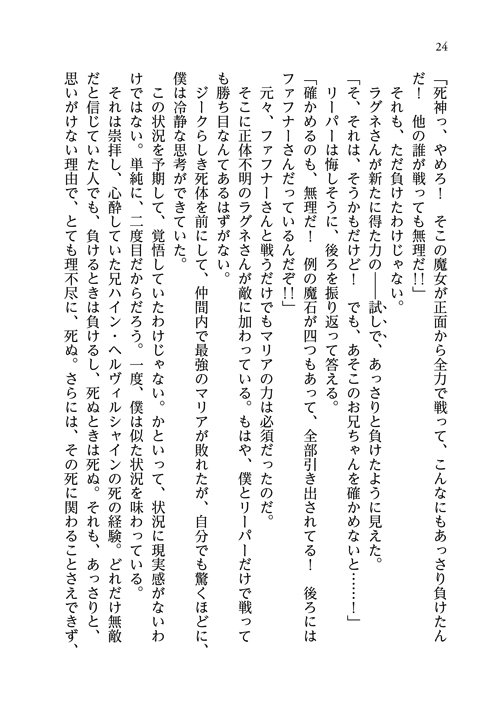 24
「死神っ、やめろ！　そこの魔女が正面から全力で戦って、こんなにもあっさり負けたん
だ！　他の誰が戦っても無理だ!!」
　それも、ただ負けたわけじゃない。
　ラグネさんが新たに得た力の――試しで、あっさりと負けたように見えた。
「そ、それは、そうかもだけど！　でも、あそこのお兄ちゃんを確かめないと……！」
　リーパーは悔しそうに、後ろを振り返って答える。
「確かめるのも、無理だ！　例の魔石が四つもあって、全部引き出されてる！　後ろには
ファフナーさんだっているんだぞ!!」
　元々、ファフナーさんと戦うだけでもマリアの力は必須だったのだ。
　そこに正体不明のラグネさんが敵に加わっている。もはや、僕とリーパーだけで戦って
も勝ち目なんてあるはずがない。
　ジークらしき死体を前にして、仲間内で最強のマリアが敗れたが、自分でも驚くほどに、
僕は冷静な思考ができていた。
　この状況を予期して、覚悟していたわけじゃない。かといって、状況に現実感がないわ
けではない。単純に、二度目だからだろう。一度、僕は似た状況を味わっている。
　それは崇拝し、心酔していた兄ハイン・ヘルヴィルシャインの死の経験。どれだけ無敵
だと信じていた人でも、負けるときは負けるし、死ぬときは死ぬ。それも、あっさりと、
思いがけない理由で、とても理不尽に、死ぬ。さらには、その死に関わることさえできず、